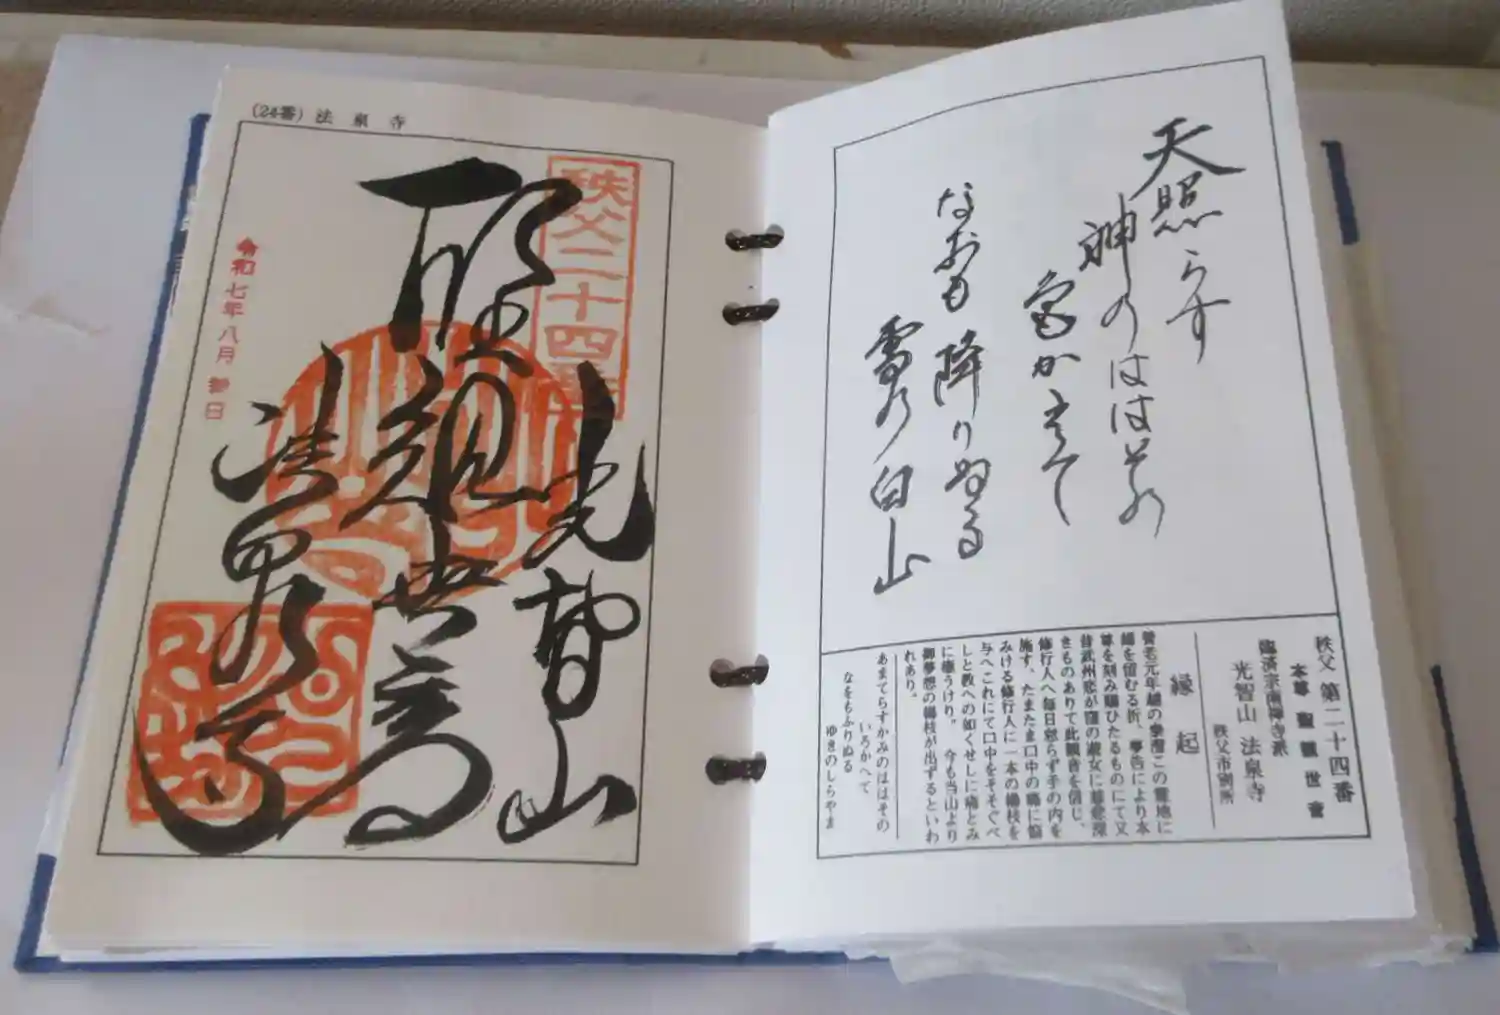 (24番) 法泉寺
秩父二十四番
光智山
聖観世音
法泉寺
令和七年八月 日
天照らす
神のははその
色かえて
なおも降りぬる
雪の白山
秩父 第二十四番
本尊 聖観世音
臨済宗南禅寺派
光智山 法泉寺
秩父市別所
縁起
養老元年越の泰澄この霊地に
錫を留むる折、夢告により本
尊を刻み賜ひたるものにて又
昔武州恋が窪の遊女に慈悲深
きものありて此観音を信じ、
修行人へ毎日怠らず手の内を
施す。たまたま口中の病に悩
みける修行人に一本の楊枝を
与へこれにて口中をそそぐべ
しと教への如くせしに痛とみ
に癒うけり。今も当山より
御夢想の楊枝が出ずるといわ
れあり。
あまてらすかみのははその
いろかへて
なをもふりぬる
ゆきのしらやま